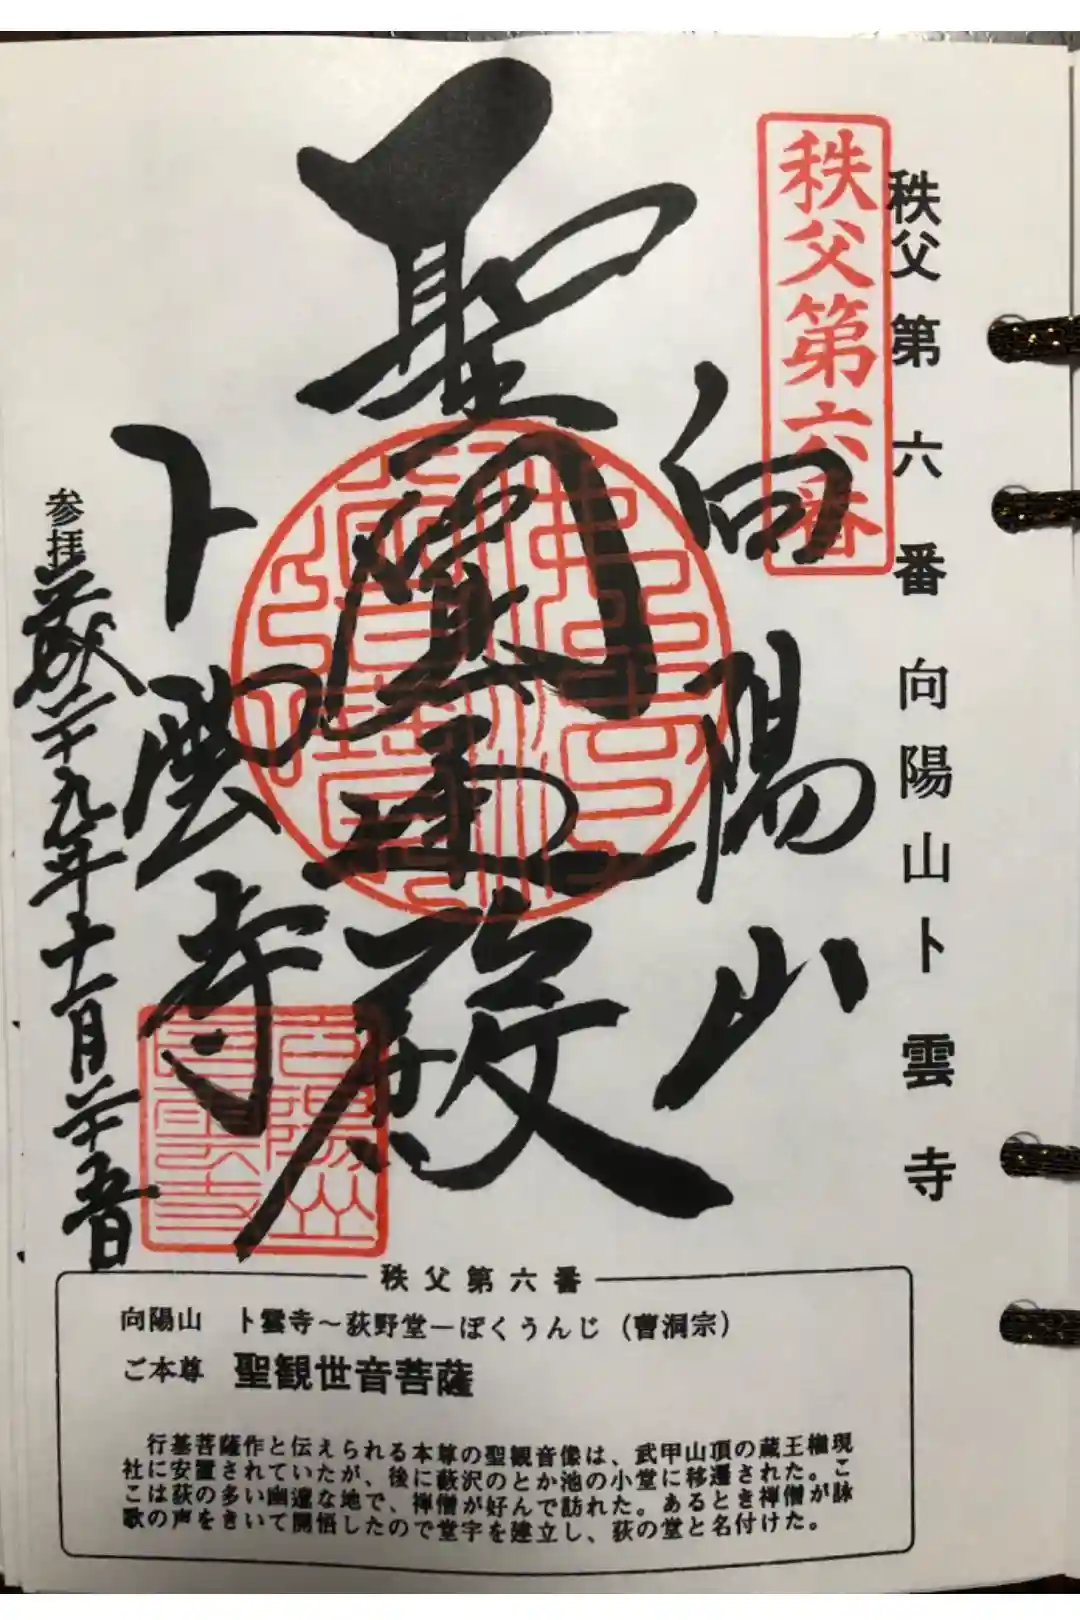 秩父第六番 向陽山卜雲寺
秩父第六番
向陽山
聖
殿
卜雲寺
参拝
二十九年十一月二十五日
秩父第六番
向陽山 卜雲寺〜荻野堂ーぼくうんじ(曹洞宗)
ご本尊 聖観世音菩薩
行基菩薩作と伝えられる本尊の聖観音像は、武甲山頂の蔵王権現
社に安置されていたが、後に藪沢のとか池の小堂に移遷された。こ
こは荻の多い幽邃な地で、禅僧が好んで訪れた。あるとき禅僧が詠
歌の声をきいて開悟したので堂宇を建立し、荻の堂と名付けた。